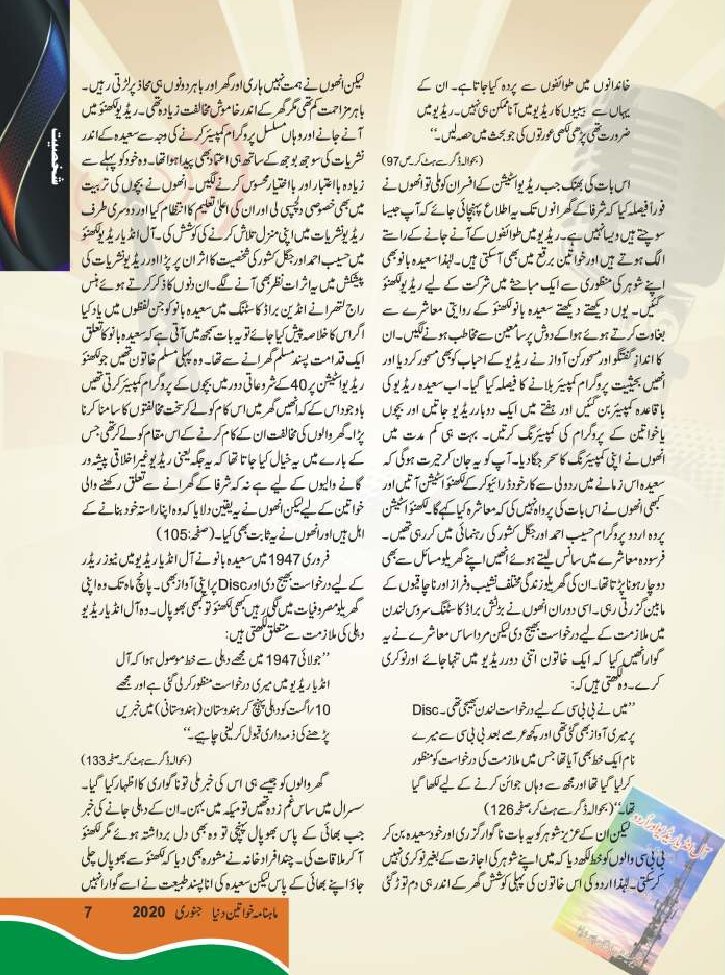 شخصیت
خاندانوں میں طوائفوں سے پردہ کیا جاتا ہے۔ ان کے
یہاں سے بیبیوں کا ریڈیو میں آنا ممکن ہی نہیں۔ ریڈیو میں
ضرورت تھی پڑھی لکھی عورتوں کی جو بحث میں حصہ لیں۔‘‘
(بحوالہ ڈگر سے ہٹ کر، ص 97)
اس بات کی بھنک جب ریڈیو اسٹیشن کے افسران کو ملی تو انھوں نے
فوراً فیصلہ کیا کہ شرفا کے گھرانوں تک یہ اطلاع پہنچائی جائے کہ آپ جیسا
سوچتے ہیں ویسا نہیں ہے۔ ریڈیو میں طوائفوں کے آنے جانے کے راستے
الگ ہوتے ہیں اور خواتین برقع میں بھی آسکتی ہیں۔ لہٰذا سعیدہ بانو بھی
اپنے شوہر کی منظوری سے ایک مباحثے میں شرکت کے لیے ریڈیو لکھنؤ
گئیں۔ یوں دیکھتے دیکھتے سعیدہ بانو لکھنؤ کے روایتی معاشرے سے
بغاوت کرتے ہوئے ہوا کے دوش پر سامعین سے مخاطب ہونے لگیں۔ ان
کا انداز گفتگو اور مسحور کن آواز نے ریڈیو کے احباب کو بھی مسحور کردیا اور
انھیں بحیثیت پروگرام کمپیئر بلانے کا فیصلہ کیا گیا۔ اب سعیدہ ریڈیو کی
باقاعدہ کمپیئر بن گئیں اور ہفتے میں ایک دو بار ریڈیو جاتیں اور بچوں
یا خواتین کے پروگرام کی کمپیئرنگ کرتیں۔ بہت ہی کم مدت میں
انھوں نے اپنی کمپیئرنگ کا سحر جگا دیا۔ آپ کو یہ جان کر حیرت ہوگی کہ
سعیدہ اس زمانے میں ردولی سے کار خود ڈرائیو کرکے لکھنؤ اسٹیشن آتیں اور
کبھی انھوں نے اس بات کی پرواہ نہیں کی کہ معاشرہ کیا کہے گا۔ لکھنؤ اسٹیشن
پر وہ اردو پروگرام حسیب احمد اور جگل کشور کی رہنمائی میں کر رہی تھیں۔
فرسودہ معاشرے میں سانس لیتے ہوئے انھیں اپنے گھریلو مسائل سے بھی
دوچار ہونا پڑتا تھا۔ ان کی گھریلو زندگی مختلف نشیب و فراز اور ناچاقیوں کے
مابین گزرتی رہی۔ اسی دوران انھوں نے برٹش براڈ کاسٹنگ سروس لندن
میں ملازمت کے لیے درخواست بھیج دی لیکن مرد اساس معاشرے نے یہ
گوارا نہیں کیا کہ ایک خاتون اتنی دور ریڈیو میں تنہا جائے اور نوکری
کرے۔ وہ لکھتی ہیں کہ:
’’میں نے بی بی سی کے لیے درخواست لندن بھیجی تھی۔ Disc
پر میری آواز بھی گئی تھی اور کچھ عرصے بعد بی بی سی سے میرے
نام ایک خط بھی آیا تھا جس میں ملازمت کی درخواست کو منظور
کرلیا گیا تھا اور مجھ سے وہاں جوائن کرنے کے لیے لکھا گیا
تھا۔‘‘ (بحوالہ ڈگر سے ہٹ کر، صفحہ 126)
لیکن ان کے عزیز شوہر کو یہ بات ناگوار گزری اور خود سعیدہ بن کر
بی بی سی والوں کو خط لکھ دیا کہ میں اپنے شوہر کی اجازت کے بغیر نوکری نہیں
کرسکتی۔ لہٰذا اردو کی اس خاتون کی پہلی کوشش گھر کے اندر ہی دم توڑ گئی
لیکن انھوں نے ہمت نہیں ہاری اور گھر اور باہر دونوں ہی محاذ پر لڑتی رہیں۔
باہر مزاحمت کم تھی مگر گھر کے اندر خاموش مخالفت زیادہ تھی۔ ریڈیو لکھنؤ میں
آنے جانے اور وہاں مسلسل پروگرام کمپیئر کرنے کی وجہ سے سعیدہ کے اندر
نشریات کی سوجھ بوجھ کے ساتھ ہی اعتماد بھی پیدا ہوا تھا۔ وہ خود کو پہلے سے
زیادہ بااعتبار اور بااختیار محسوس کرنے لگیں۔ انھوں نے بچوں کی تربیت
میں بھی خصوصی دلچسپی لی اور ان کی اعلیٰ تعلیم کا انتظام کیا اور دوسری طرف
ریڈیو نشریات میں اپنی منزل تلاش کرنے کی کوشش کی۔ آل انڈیا ریڈیو لکھنؤ
میں حسیب احمد اور جگل کشور کی شخصیت کا اثر ان پر پڑا اور ریڈیو نشریات کی
پیشکش میں یہ اثرات نظر بھی آنے لگے۔ ان دنوں کا ذکر کرتے ہوئے ہنس
راج لتھرا نے انڈین براڈ کاسٹنگ میں سعیدہ بانو کو جن لفظوں میں یاد کیا
اگر اس کا خلاصہ پیش کیا جائے تو یہ بات سمجھ میں آتی ہے کہ سعیدہ بانو کا تعلق
ایک قدامت پسند مسلم گھرانے سے تھا۔ وہ پہلی مسلم خاتون تھیں جو لکھنؤ
ریڈیو اسٹیشن پر 40 کے شروعاتی دور میں بچوں کے پروگرام کمپیئر کرتی تھیں
باوجود اس کے کہ انھیں گھر میں اس کام کو لے کر سخت مخالفتوں کا سامنا کرنا
پڑا۔ گھر والوں کی مخالفت ان کے کام کرنے کے اس مقام کو لے کر تھی جس
کے بارے میں یہ خیال کیا جاتا تھا کہ یہ جگہ یعنی ریڈیو غیر اخلاقی پیشہ ور
گانے والیوں کے لیے ہے نہ کہ شرفا کے گھرانے سے تعلق رکھنے والی
خواتین کے لیے لیکن انھوں نے یہ یقین دلایا کہ وہ اپنا راستہ خود بنانے کے
اہل ہیں اور انھوں نے یہ ثابت بھی کیا۔ (صفحہ: 105)
فروری 1947 میں سعیدہ بانو نے آل انڈیا ریڈیو میں نیوز ریڈر
کے لیے درخواست بھیج دی اور Disc پر اپنی آواز بھی۔ پانچ ماہ تک وہ اپنی
گھریلو مصروفیات میں لگی رہیں کبھی لکھنؤ تو کبھی بھوپال۔ وہ آل انڈیا ریڈیو
دہلی کی ملازمت سے متعلق لکھتی ہیں:
’’جولائی 1947 میں مجھے دہلی سے خط موصول ہوا کہ آل
انڈیا ریڈیو میں میری درخواست منظور کرلی گئی ہے اور مجھے
10/اگست کو دہلی پہنچ کر ہندوستان (ہندوستانی) میں خبریں
پڑھنے کی ذمہ داری قبول کر لیتی چاہیے۔‘‘
(بحوالہ ڈگر سے ہٹ کر، صفحہ 133)
گھر والوں کو جیسے ہی اس کی خبر ملی تو ناگواری کا اظہار کیا گیا۔
سسرال میں ساس غم زدہ تھیں تو میکہ میں بہن۔ ان کے دہلی جانے کی خبر
جب بھائی کے پاس بھوپال پہنچی تو وہ بھی دل برداشتہ ہوئے مگر لکھنؤ
آکر ملاقات کی۔ چند افراد خانہ نے مشورہ بھی دیا کہ لکھنؤ سے بھوپال چلی
جاؤ اپنے بھائی کے پاس لیکن سعیدہ کی انا پسند طبیعت نے اسے گوارا نہیں
ماہنامہ خواتین دنیا جنوری 2020 7